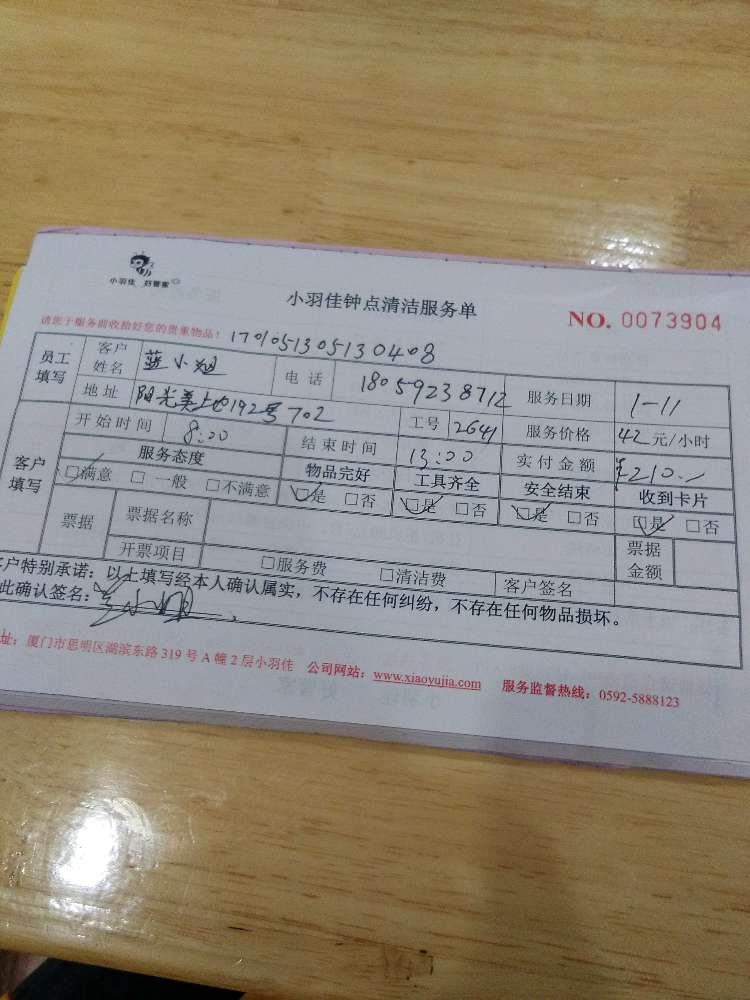 小羽佳 好管家
小羽佳钟点清洁服务单
NO. 0073904
请您于服务前收拾好您的贵重物品！ 1701051305130408
员工填写 客户姓名 蓝小姐 电话 18059238712 服务日期 1-11
地址 阳光美地192号702 工号 2641 服务价格 42元/小时
客户填写 开始时间 8:00 结束时间 13:00 实付金额 ¥210.
服务态度 物品完好 工具齐全 安全结束 收到卡片
☑满意 □一般 □不满意 ☑是 □否 ☑是 □否 ☑是 □否 ☑是 □否
票据 票据名称 票据金额
开票项目 □服务费 □清洁费 客户签名
客户特别承诺：以上填写经本人确认属实，不存在任何纠纷，不存在任何物品损坏。
此确认签名：
址：厦门市思明区湖滨东路 319 号 A 幢 2 层小羽佳 公司网站：www.xiaoyujia.com 服务监督热线：0592-5888123